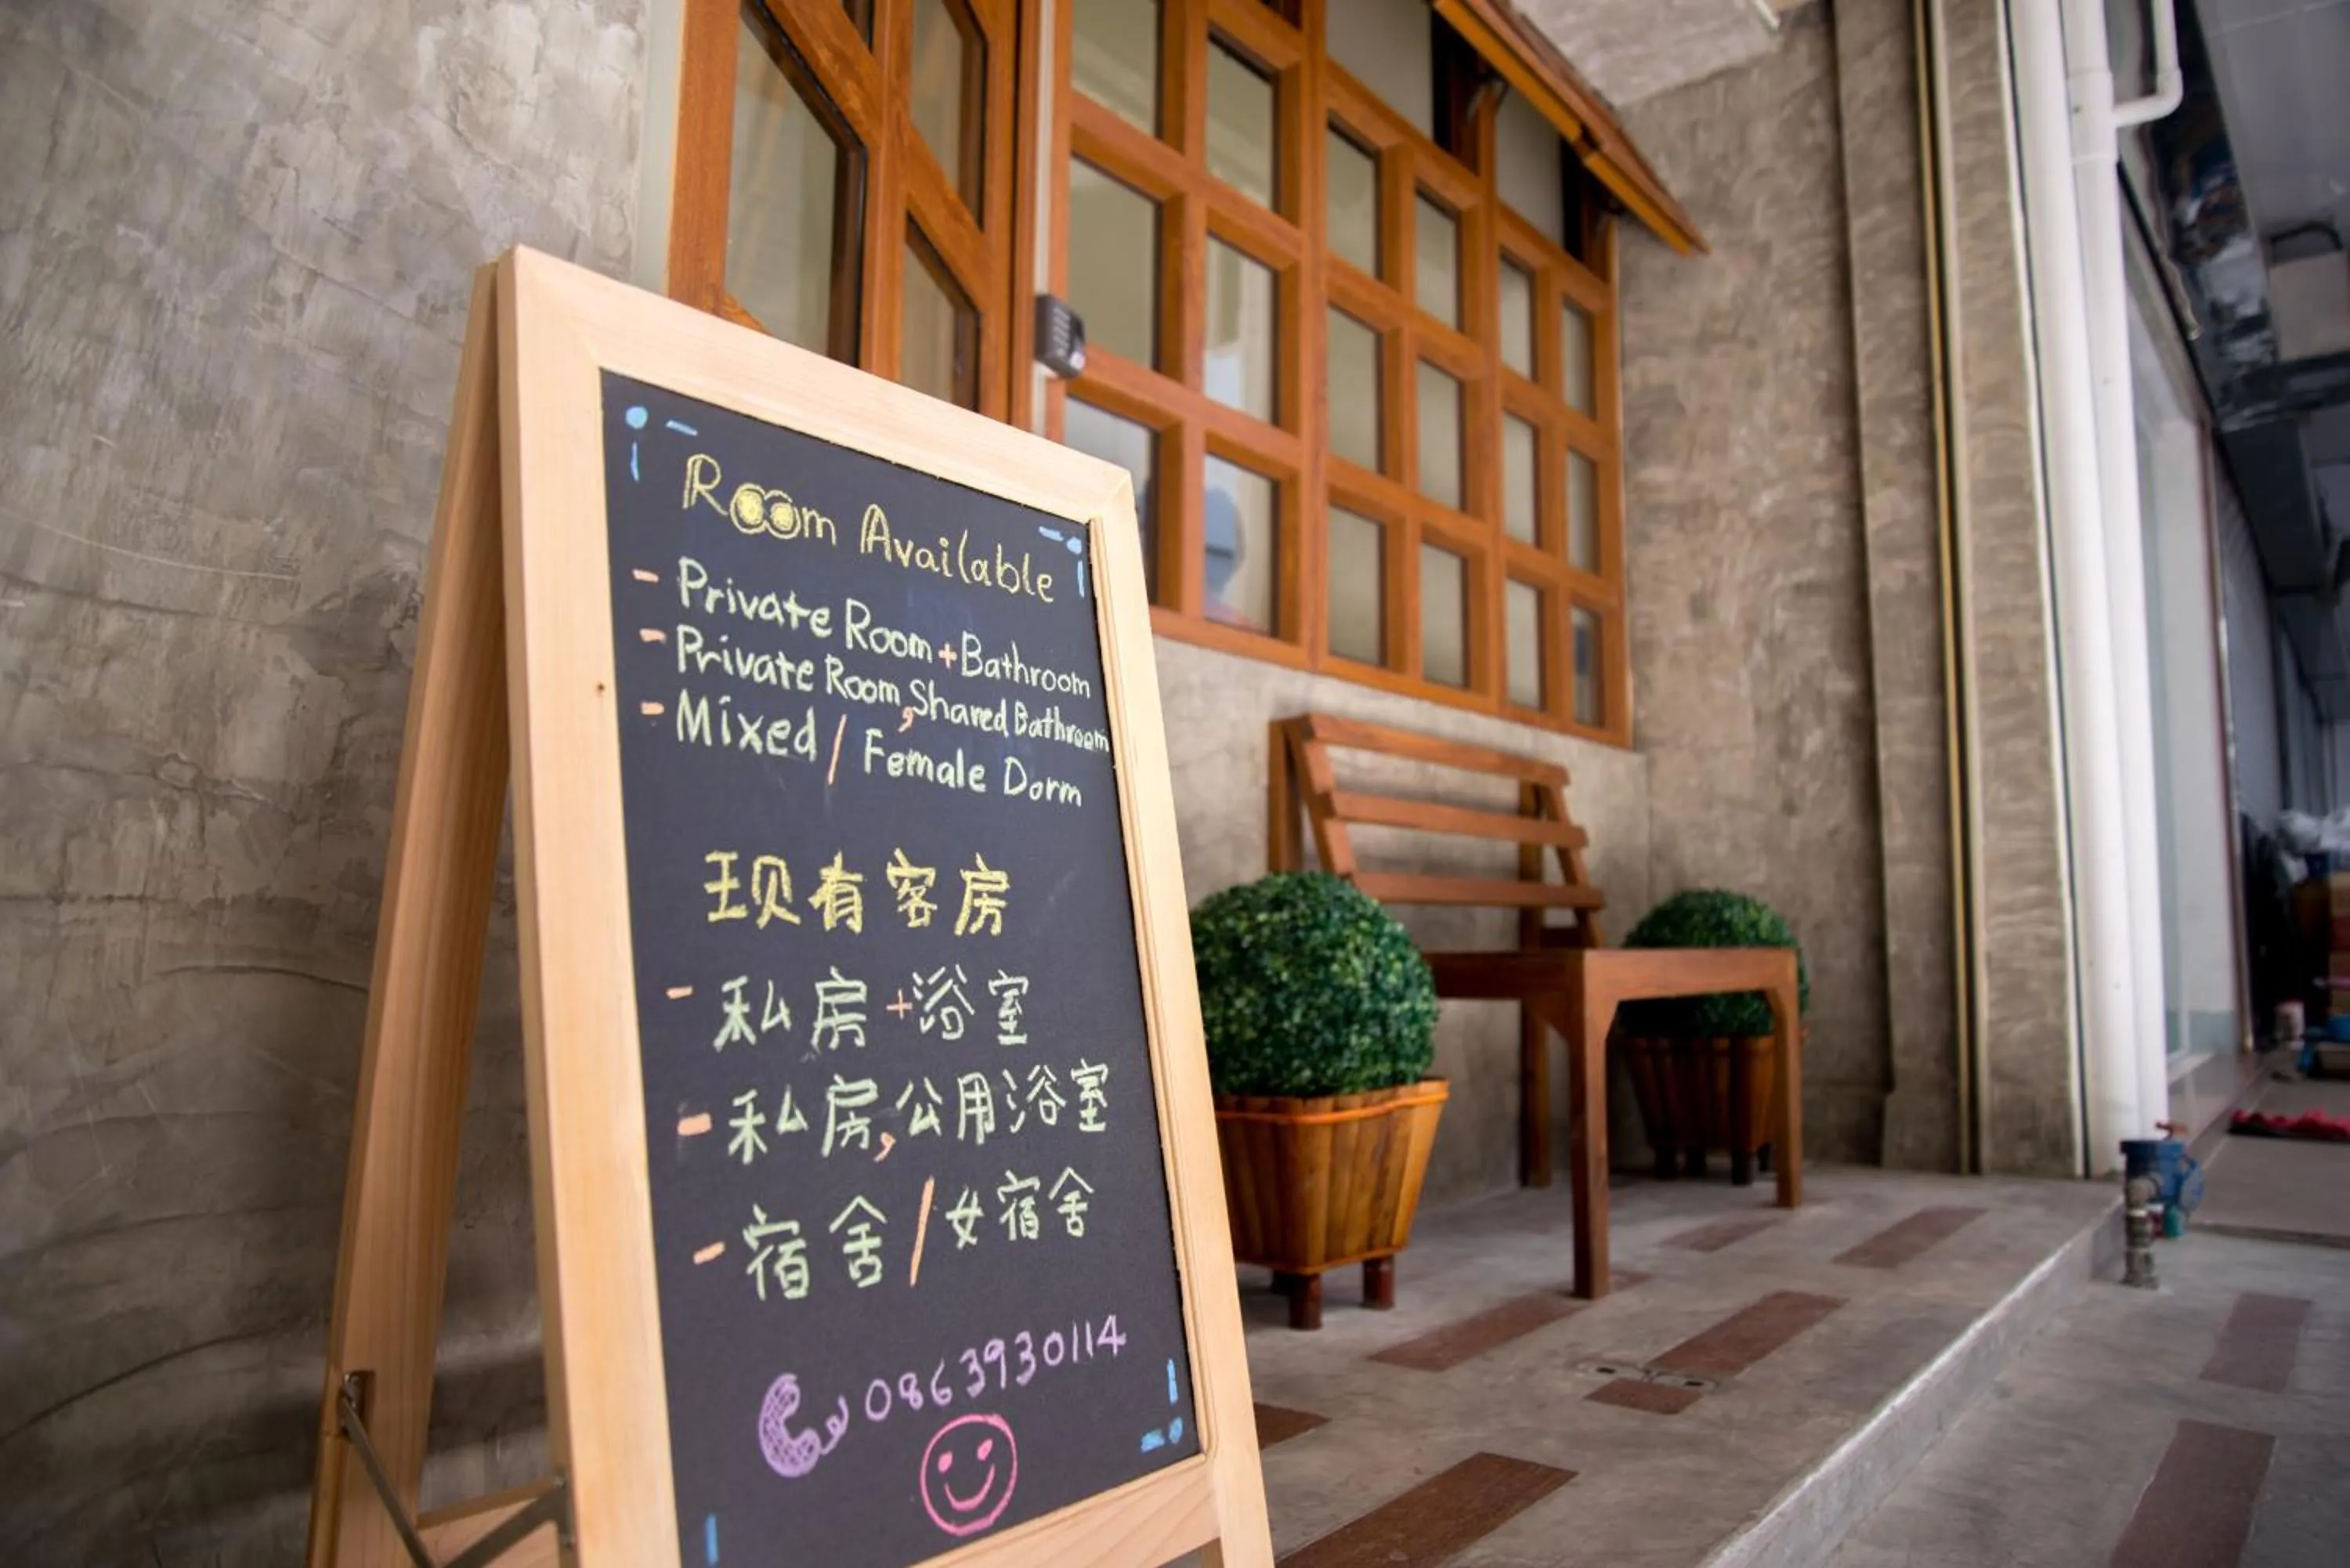 Room Available
- Private Room + Bathroom
- Private Room, Shared Bathroom
- Mixed / Female Dorm
现有客房
- 私房 + 浴室
- 私房, 公用浴室
- 宿舍 / 女宿舍
0863930114